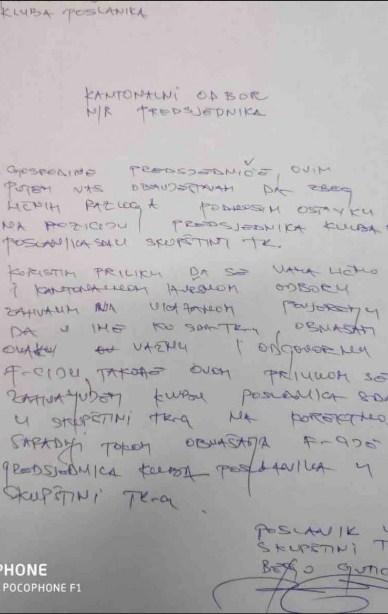 KLUBA POSLANIKA
KANTONALNI ODBOR
N/R PREDSJEDNIKA
GOSPODINE PREDSJEDNIČE, OVIM
PUTEM VAS OBAVJEŠTAVAM DA ZBOG
LIČNIH RAZLOGA PODNOSIM OSTAVKU
NA POZICIJU PREDSJEDNIKA KLUBA
POSLANIKA SDA U SKUPŠTINI TK.
KORISTIM PRILIKU DA SE VAMA LIČNO
I KANTONALNOM ODBORU
ZAHVALIM NA UKAZANOM POVJERENJU
DA U IME KO SDA TK, OBNAŠAM
OVAKO VAŽNU I ODGOVORNU
F-CIJU, TAKOĐE OVOM PRILIKOM SE
ZAHVALJUJEM KLUBU POSLANIKA SDA
U SKUPŠTINI TK-a NA KOREKTNOJ
SARADNJI TOKOM OBNAŠANJA F-CIJE
PREDSJEDNIKA KLUBA POSLANIKA U
SKUPŠTINI TK-a.
POSLANIK U
SKUPŠTINI T
BEGO GUTIĆ
PHONE
POCOPHONE F1